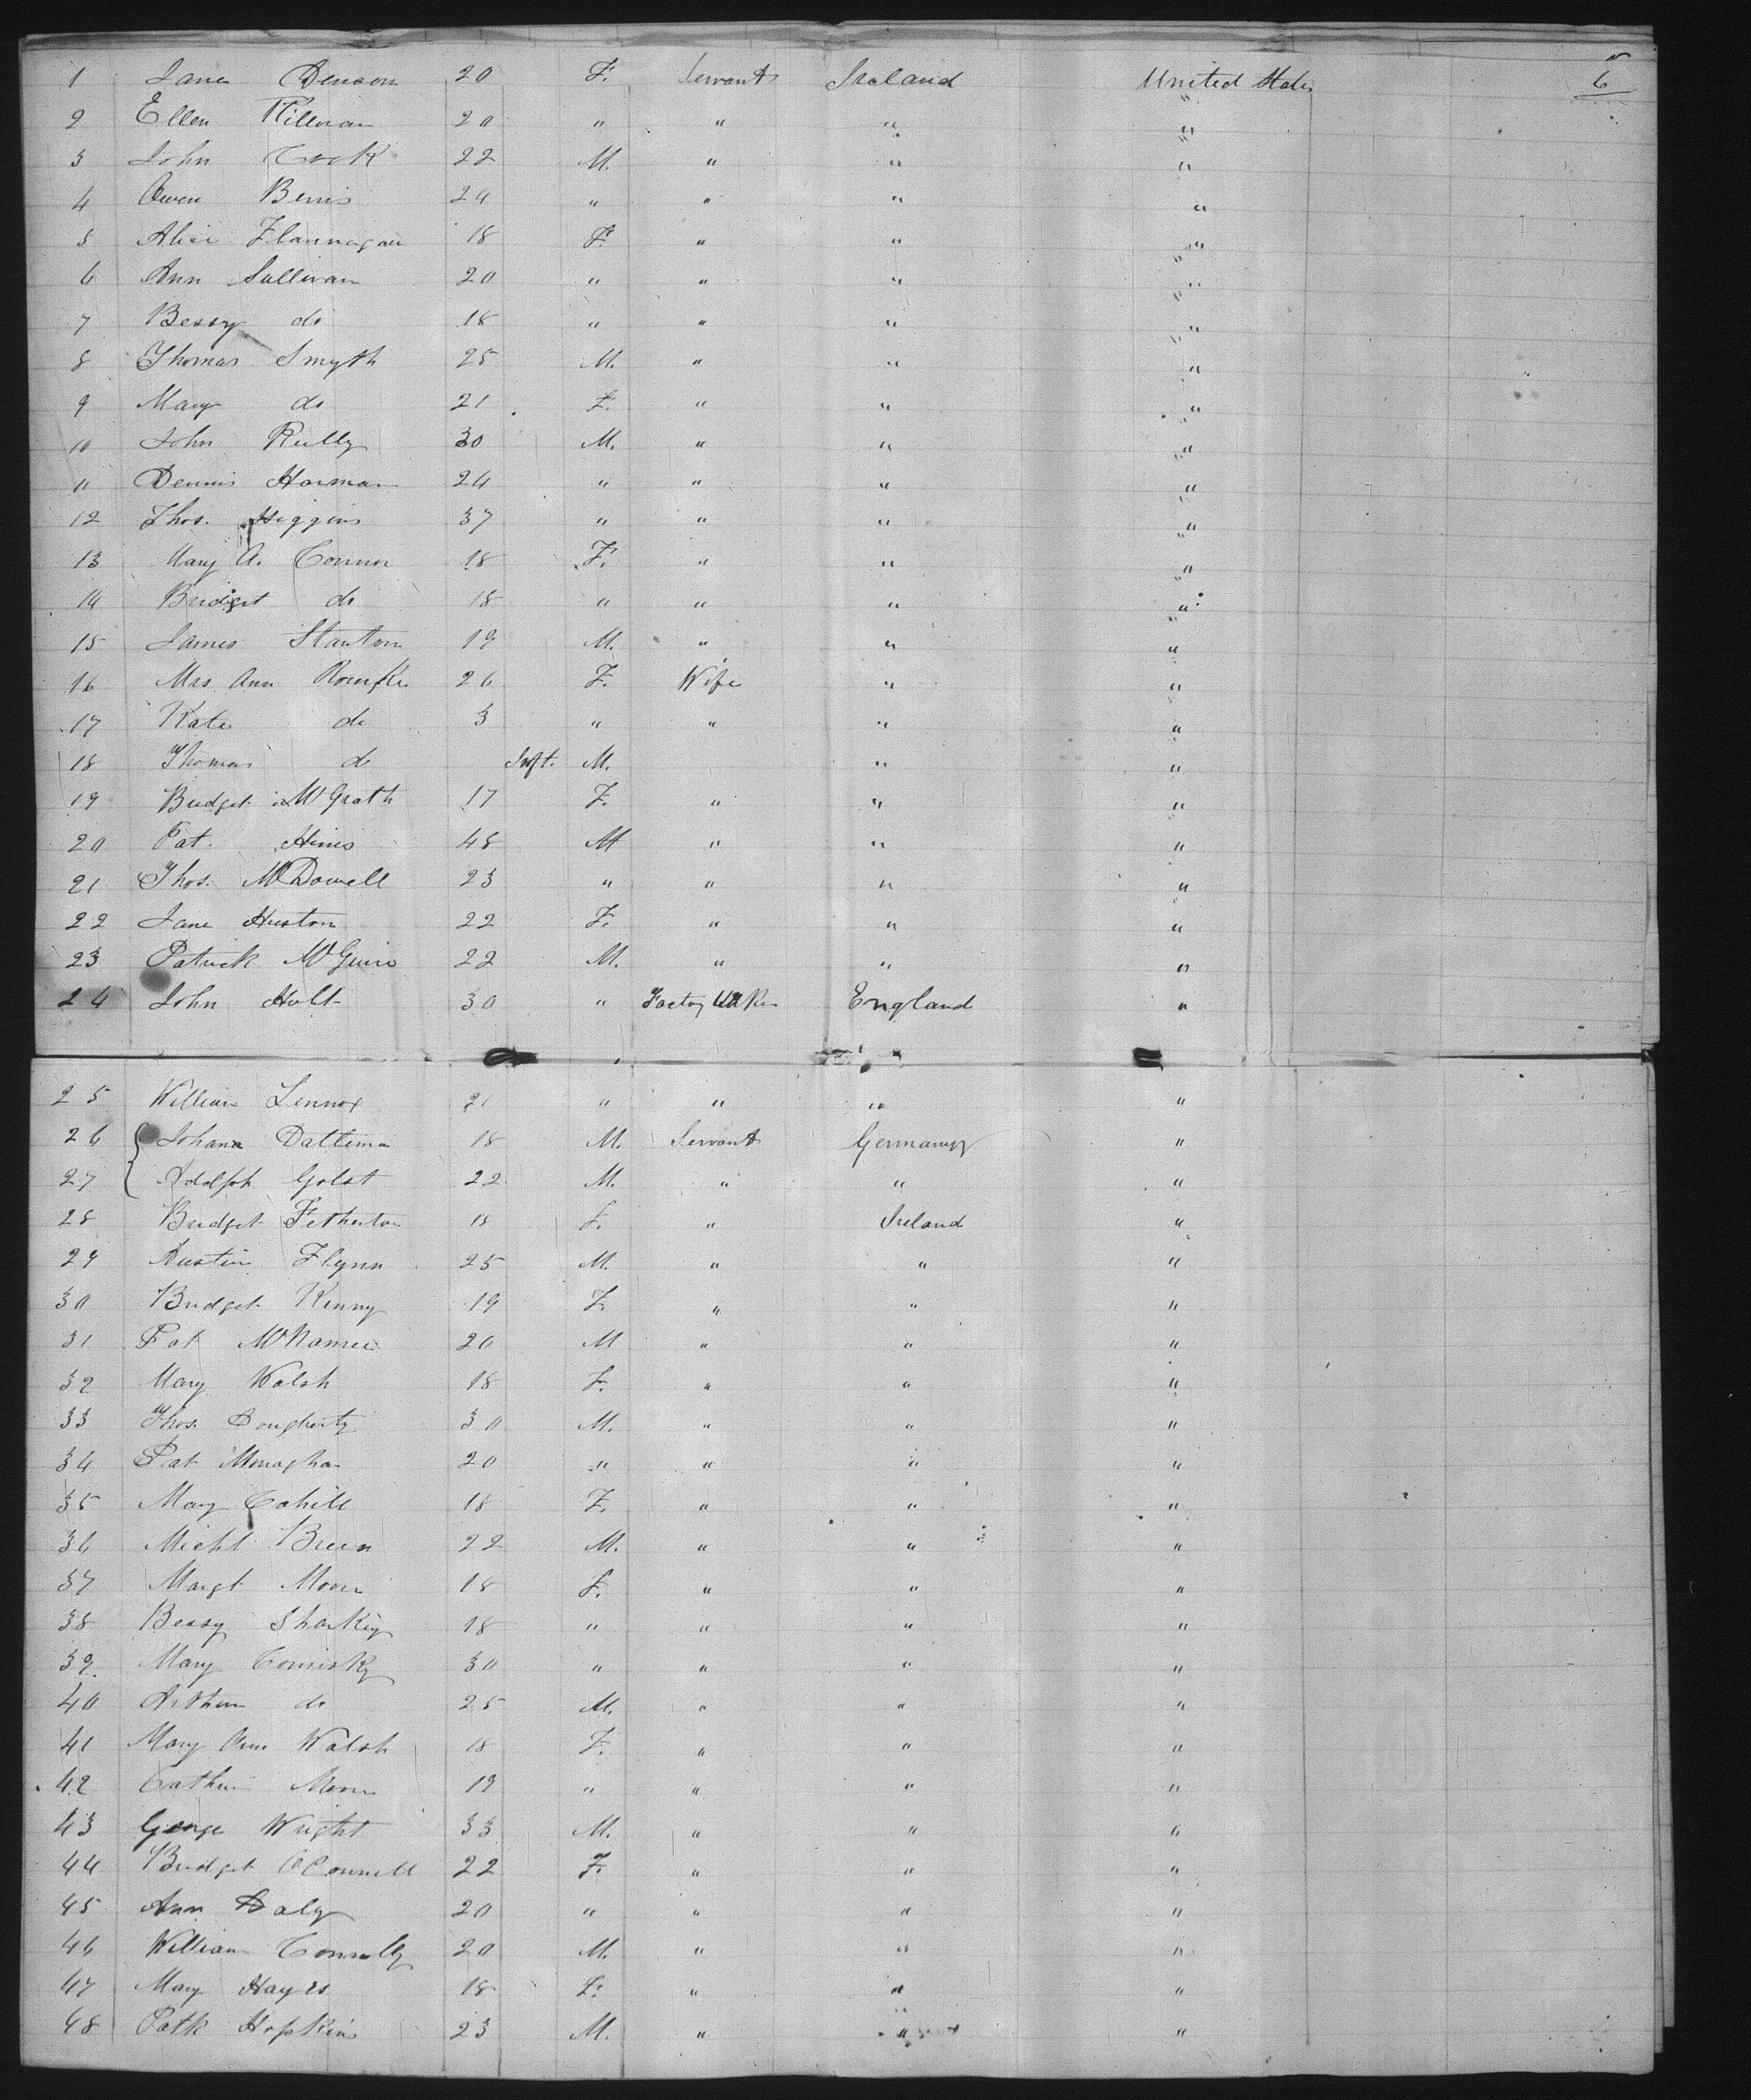 6
1 Jane Denson 20 F. Servant Ireland United States
2 Ellen 20 " " " "
3 John Cook 22 M. " " "
4 Owen 24 " " " "
5 Alice Flannagan 18 F. " " "
6 Ann Sullivan 20 " " " "
7 Bessy do 18 " " " "
8 Thomas Smyth 25 M. " " "
9 Mary do 21 F. " " "
10 John Reilly 30 M. " " "
11 Dennis Harman 24 " " " "
12 Thos. Higgins 37 " " " "
13 Mary A. Connor 18 F. " " "
14 Bridget do 18 " " " "
15 James Stanton 19 M. " " "
16 Mrs Ann Rourke 26 F. Wife " "
17 Kate do 3 " " " "
18 Thomas do Inft. M. " "
19 Bridget McGrath 17 F. " " "
20 Pat. Hines 48 M " " "
21 Thos. McDowell 23 " " " "
22 Jane Huston 22 F. " " "
23 Patrick McGuire 22 M. " " "
24 John Holt 30 " Factory England "
25 William Lennox 21 " " " "
26 Johann 18 M. Servant Germany "
27 Adolph Golst 22 M. " " "
28 Bridget Fetherton 18 F. " Ireland "
29 Austin Flynn 25 M. " " "
30 Bridget Kenny 19 F " " "
31 Pat McNamee 20 M " " "
32 Mary Walsh 18 F. " " "
33 Thos. Dougherty 30 M. " " "
34 Pat Monaghan 20 " " " "
35 Mary Cahill 18 F. " " "
36 Michl Breen 22 M. " " "
37 Margt Moore 18 F. " " "
38 Bessy Sharkey 18 " " " "
39 Mary Comisky 30 " " " "
40 Arthur do 25 M. " " "
41 Mary Ann Walsh 18 F. " " "
42 Cathrin Moore 19 " " " "
43 George Wright 33 M. " " "
44 Bridget OConnell 22 F. " " "
45 Ann Daly 20 " " " "
46 William Connolly 20 M. " " "
47 Mary Hayes 18 F. " " "
48 Patk Hopkins 23 M. " " "